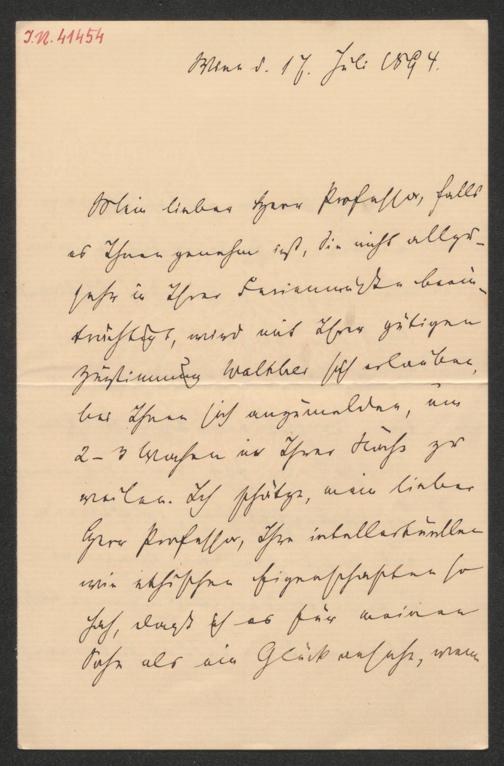 J.N. 41454
Wien d. 17. Juli 1894.
Mein lieber Herr Professor, falls
es Ihnen genehm ist, Sie nicht allzu-
sehr in Ihrer Ferienmuße beein-
trächtigt, wird mit Ihrer gütigen
Zustimmung Walther sich erlauben,
bei Ihnen sich anzumelden, um
2-3 Wochen in Ihrer Nähe zu
weilen. Ich schätze, mein lieber
Herr Professor, Ihre intellectuellen
wie ethischen Eigenschaften so
hoch, dass ich es für meinen
Sohn als ein Glück ansehe, wenn